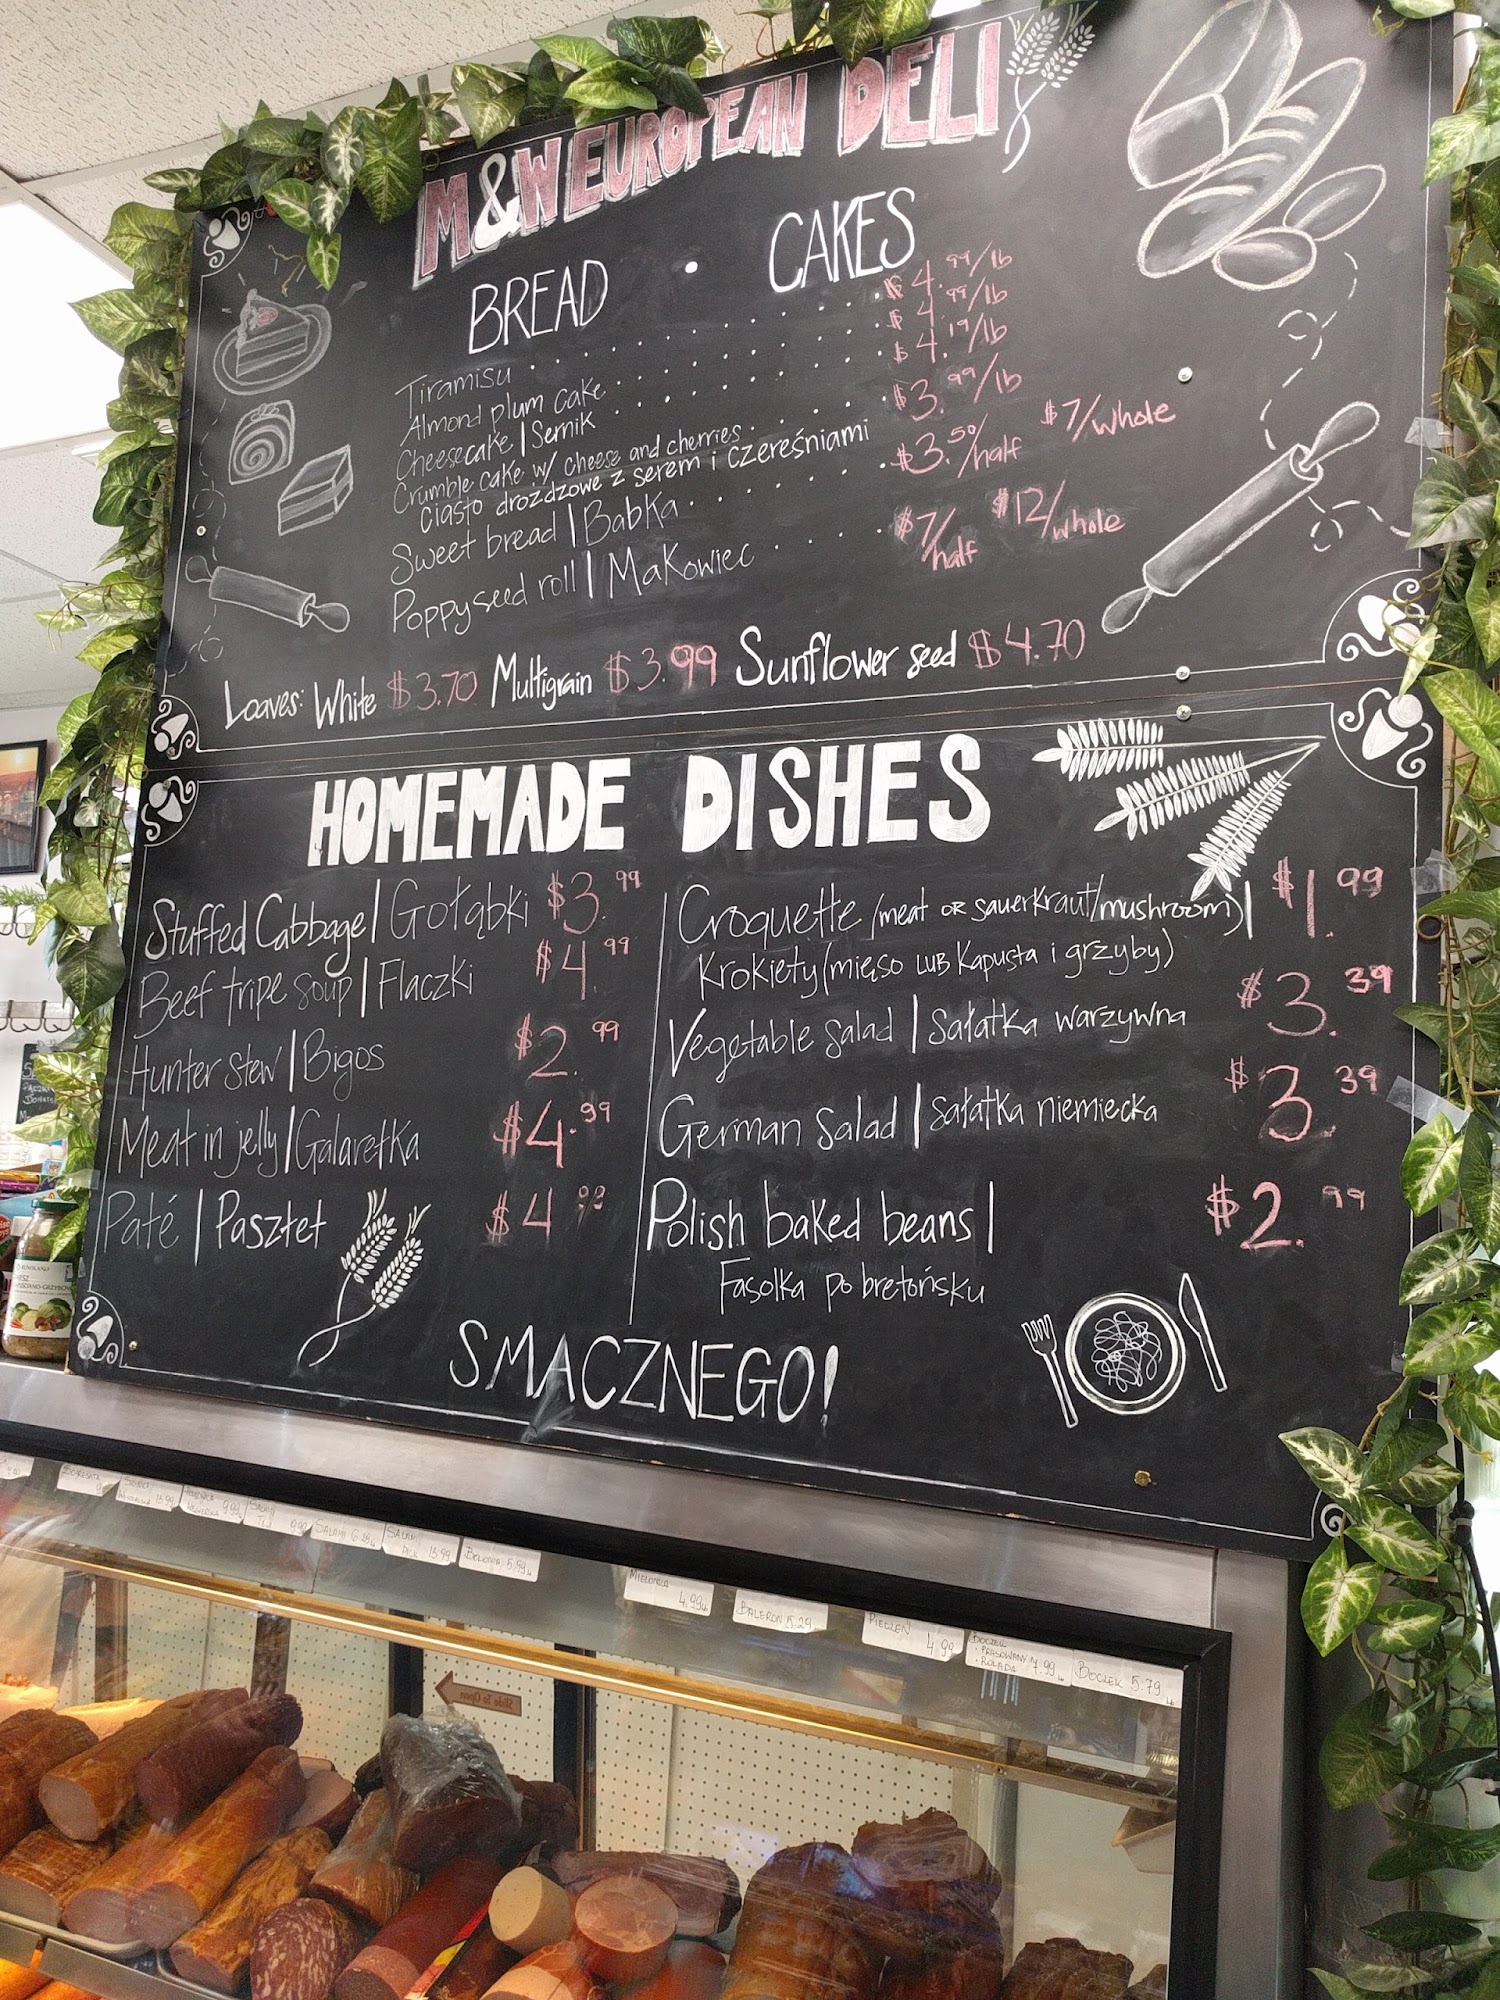 M&W EUROPEAN DELI
BREAD · CAKES
Tiramisu $4.99/lb
Almond plum cake $4.99/lb
Cheesecake | Sernik $4.19/lb
Crumble cake w/ cheese and cherries $3.99/lb
ciasto drozdzowe z serem i czereśniami
Sweet bread | Babka $3.50/half $7/whole
Poppyseed roll | Makowiec $7/half $12/whole
Loaves: White $3.70 Multigrain $3.99 Sunflower seed $4.70
HOMEMADE DISHES
Stuffed Cabbage | Gołąbki $3.99
Beef tripe soup | Flaczki $4.99
Hunter stew | Bigos $2.99
Meat in jelly | Galaretka $4.99
Paté | Pasztet $4.99
Croquette (meat or sauerkraut/mushroom) | $1.99
Krokiety (mięso lub kapusta i grzyby)
Vegetable salad | Sałatka warzywna $3.39
German salad | Sałatka niemiecka $3.39
Polish baked beans | $2.99
Fasolka po bretońsku
SMACZNEGO!
SALAMI 6.29
BOLONIA 5.99
MIELONKA
4.99
BALERON 5.29
PIECZEŃ
4.99
BOCZEK
· PRASOWANY 7.99
· ROLADA
BOCZEK 5.79
Slide To Open